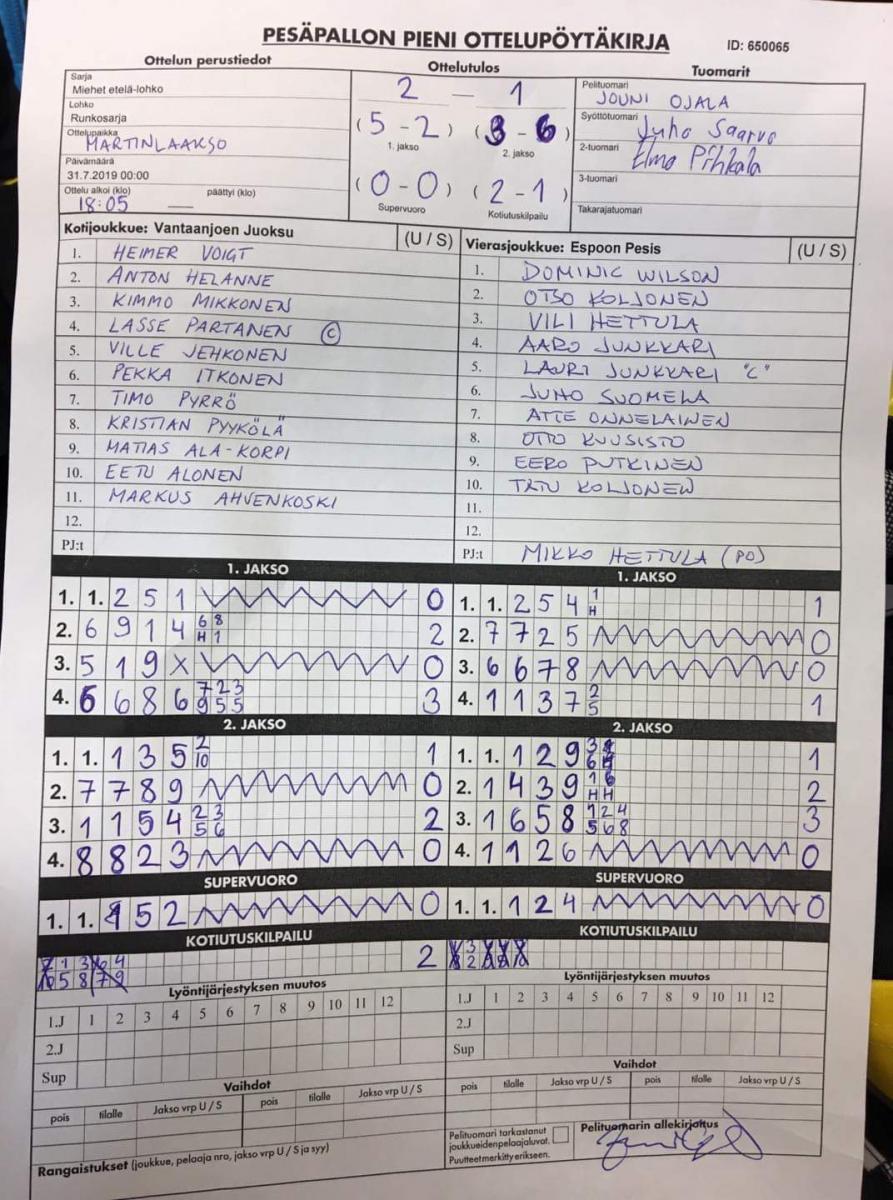 PESÄPALLON PIENI OTTELUPÖYTÄKIRJA
ID: 650065
Ottelun perustiedot
Ottelutulos
Tuomarit
Sarja
Miehet etelä-lohko
Lohko
Runkosarja
Ottelupaikka
MARTINLAAKSO
Päivämäärä
31.7.2019 00:00
Ottelu alkoi (klo) päättyi (klo)
18:05 —
2 — 1
(5 - 2) (3 - 6)
1. jakso 2. jakso
(0 - 0) (2 - 1)
Supervuoro Kotiutuskilpailu
Pelituomari
JOUNI OJALA
Syöttötuomari
Juho Saarvo
2-tuomari
Elmo Pihkala
3-tuomari
Takarajatuomari
Kotijoukkue: Vantaanjoen Juoksu (U / S)
1. HEIMER VOIGT
2. ANTON HELANNE
3. KIMMO MIKKONEN
4. LASSE PARTANEN Ⓒ
5. VILLE JEHKONEN
6. PEKKA ITKONEN
7. TIMO PYRRÖ
8. KRISTIAN PYYKÖLÄ
9. MATIAS ALA-KORPI
10. EETU ALONEN
11. MARKUS AHVENKOSKI
12.
PJ:t
Vierasjoukkue: Espoon Pesis (U / S)
1. DOMINIC WILSON
2. OTSO KOLJONEN
3. VILI HETTULA
4. AARO JUNKKARI
5. LAURI JUNKKARI "C"
6. JUHO SUOMELA
7. ATTE ONNELAINEN
8. OTTO KUUSISTO
9. EERO PUTKINEN
10. TATU KOLJONEN
11.
12.
PJ:t MIKKO HETTULA (PO)
1. JAKSO
1. 1. 2 5 1 0
2. 6 9 1 4 6 8 2
H 1
3. 5 1 9 X 0
4. 6 6 8 6 7 2 3 3
9 5 5
2. JAKSO
1. 1. 1 3 5 2 1
10
2. 7 7 8 9 0
3. 1 1 5 4 2 3 2
5 6
4. 8 8 2 3 0
SUPERVUORO
1. 1. 4 5 2 0
KOTIUTUSKILPAILU
2
1. JAKSO
1. 1. 2 5 4 1 1
H
2. 7 7 2 5 0
3. 6 6 7 8 0
4. 1 1 3 7 2 1
5
2. JAKSO
1. 1. 1 2 9 3 1
6
2. 1 4 3 9 1 6 2
H H
3. 1 6 5 8 1 2 4 3
5 6 8
4. 1 1 2 6 0
SUPERVUORO
1. 1. 1 2 4 0
KOTIUTUSKILPAILU
Lyöntijärjestyksen muutos
1.J 1 2 3 4 5 6 7 8 9 10 11 12
2.J
Sup
Vaihdot
pois tilalle Jakso vrp U / S pois tilalle Jakso vrp U / S
Lyöntijärjestyksen muutos
1.J 1 2 3 4 5 6 7 8 9 10 11 12
2.J
Sup
Vaihdot
pois tilalle Jakso vrp U / S pois tilalle Jakso vrp U / S
Rangaistukset (joukkue, pelaaja nro, jakso vrp U / S ja syy)
Pelituomari tarkastanut
joukkueidenpelaajaluvat.
Puutteetmerkitty erikseen.
Pelituomarin allekirjoitus